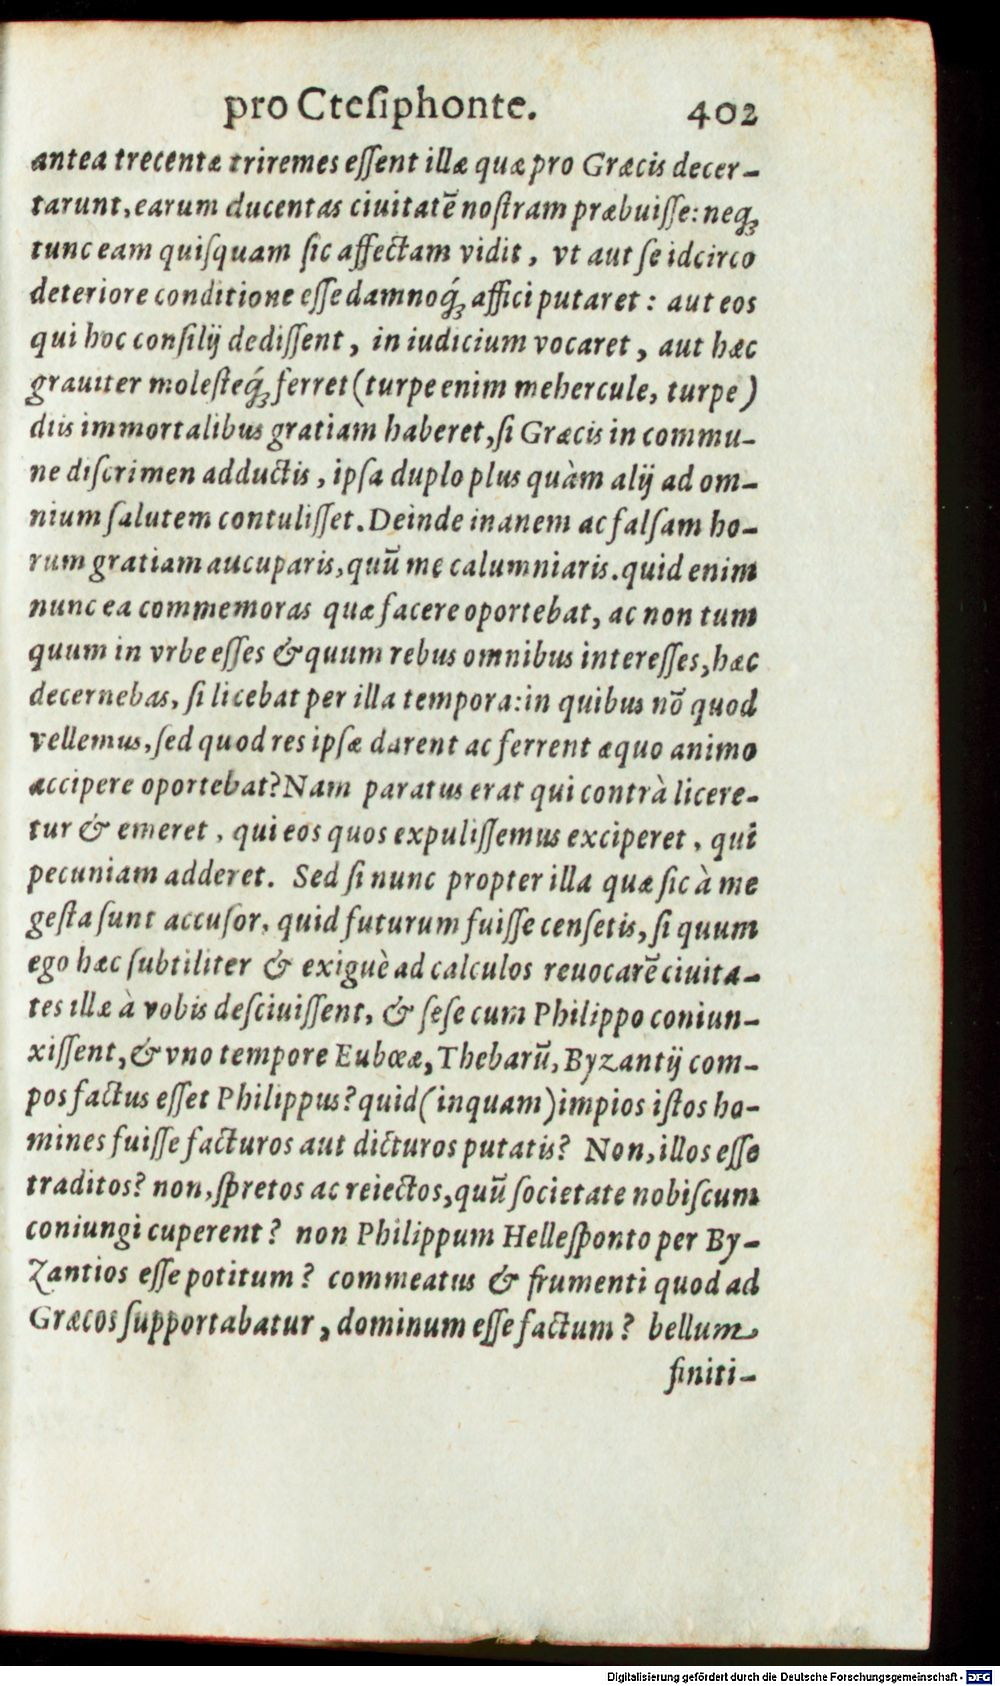 pro Cteſiphonte. 402
antea trecentæ triremes eſſent illæ quæ pro Græcis decer-
tarunt, earum ducentas ciuitatē noſtram præbuiſſe: neq;
tunc eam quiſquam ſic affectam vidit, vt aut ſe idcirco
deteriore conditione eſſe damnoq́; affici putaret: aut eos
qui hoc conſilij dediſſent, in iudicium vocaret, aut hæc
grauiter moleſteq́; ferret (turpe enim mehercule, turpe)
diis immortalibus gratiam haberet, ſi Græcis in commu-
ne diſcrimen adductis, ipſa duplo plus quàm alij ad om-
nium ſalutem contuliſſet. Deinde inanem ac falſam ho-
rum gratiam aucuparis, quū me calumniaris. quid enim
nunc ea commemoras quæ facere oportebat, ac non tum
quum in vrbe eſſes & quum rebus omnibus intereſſes, hæc
decernebas, ſi licebat per illa tempora: in quibus nō quod
vellemus, ſed quod res ipſæ darent ac ferrent æquo animo
accipere oportebat? Nam paratus erat qui contrà licere-
tur & emeret, qui eos quos expuliſſemus exciperet, qui
pecuniam adderet. Sed ſi nunc propter illa quæ ſic à me
geſta ſunt accuſor, quid futurum fuiſſe cenſetis, ſi quum
ego hæc ſubtiliter & exiguè ad calculos reuocarē ciuita-
tes illæ à vobis deſciuiſſent, & ſeſe cum Philippo coniun-
xiſſent, & vno tempore Eubœæ, Thebarū, Byzantij com-
pos factus eſſet Philippus? quid (inquam) impios iſtos ho-
mines fuiſſe facturos aut dicturos putatis? Non, illos eſſe
traditos? non, ſpretos ac reiectos, quū ſocietate nobiſcum
coniungi cuperent? non Philippum Helleſponto per By-
zantios eſſe potitum? commeatus & frumenti quod ad
Græcos ſupportabatur, dominum eſſe factum? bellum
finiti-
Digitalisierung gefördert durch die Deutsche Forschungsgemeinschaft - DFG